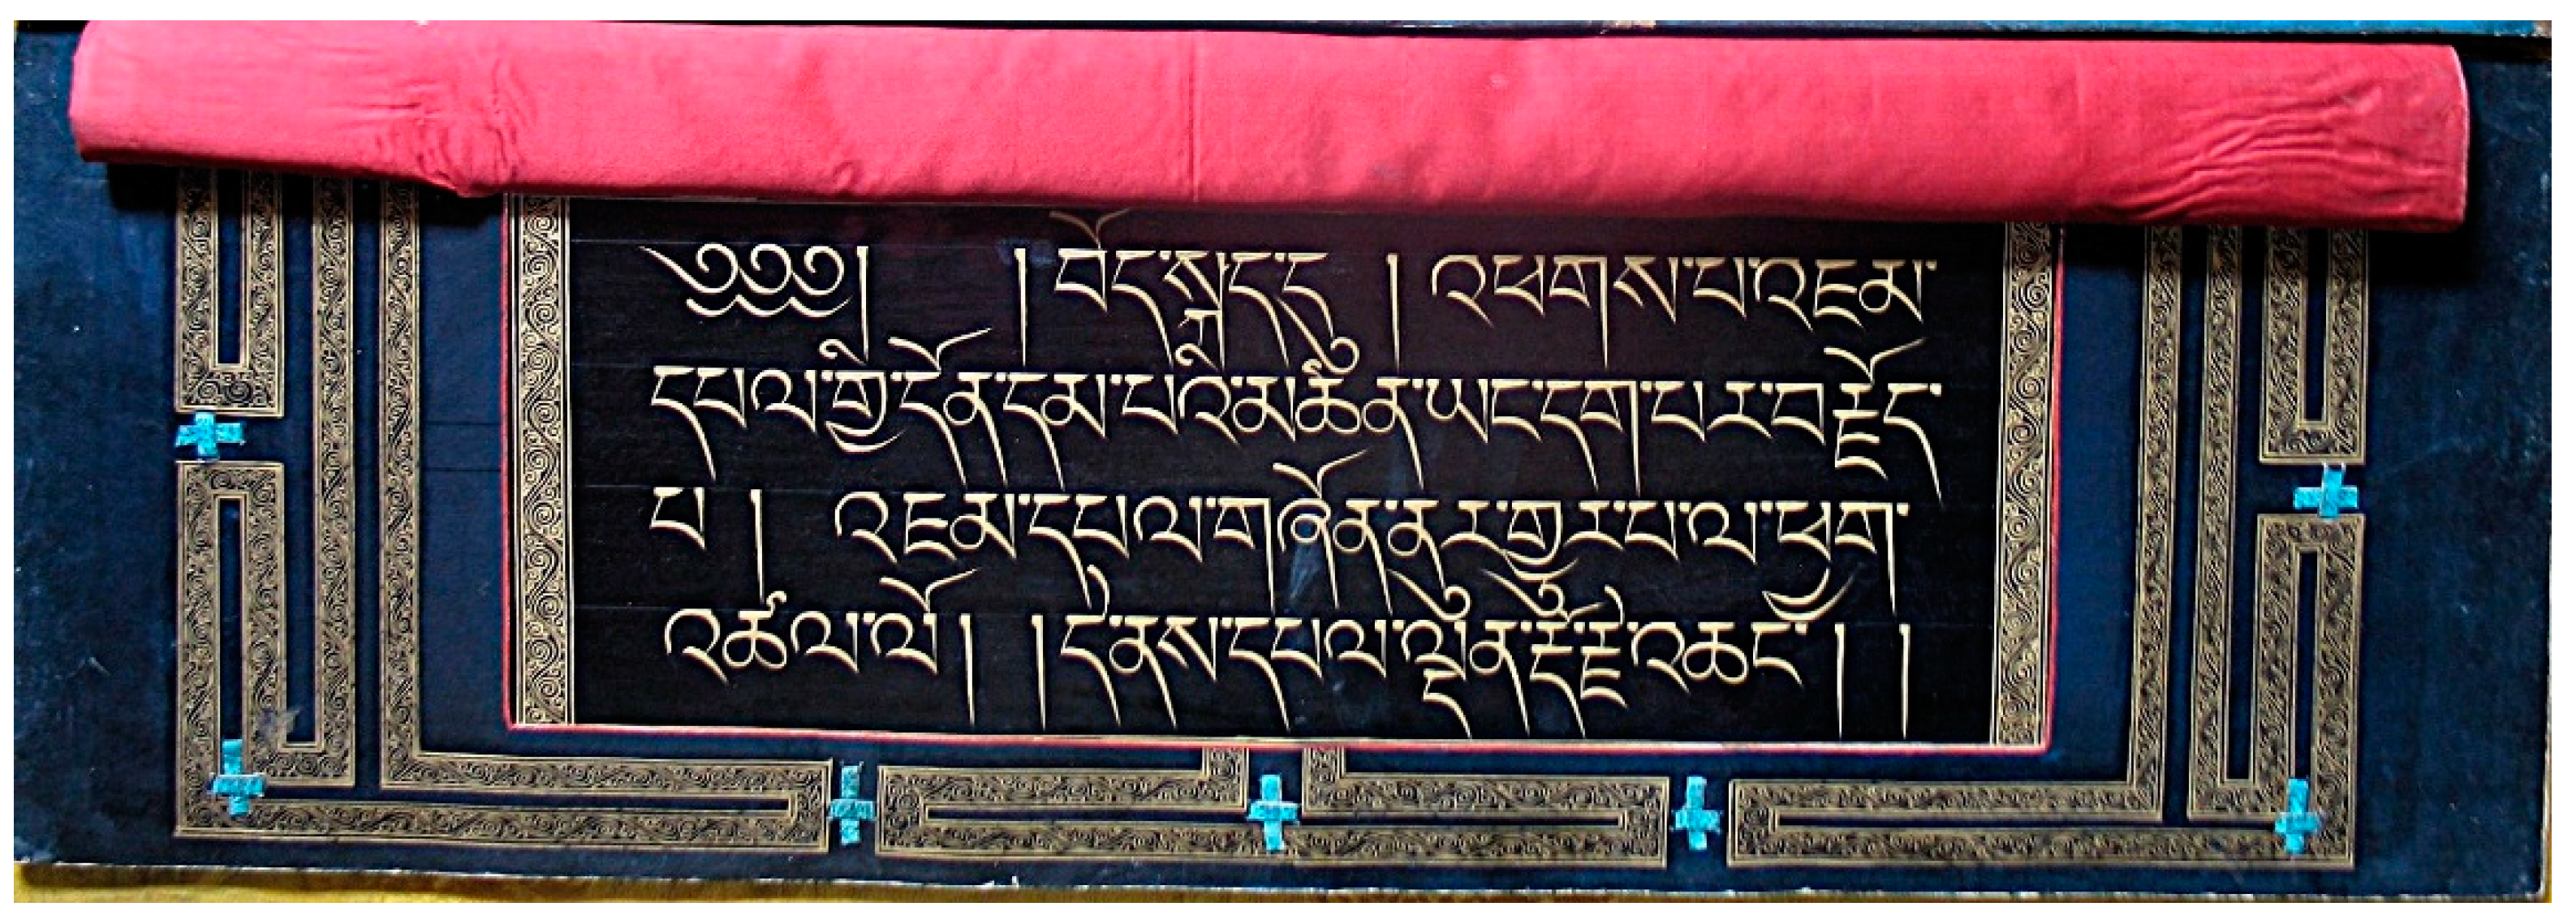 ༄༅༅། །བོད་སྐད་དུ །འཕགས་པ་འཇམ་
དཔལ་གྱི་དོན་དམ་པའི་མཚན་ཡང་དག་པར་བརྗོད་
པ །འཇམ་དཔལ་གཞོན་ནུར་གྱུར་པ་ལ་ཕྱག་
འཚལ་ལོ། །དེ་ནས་དཔལ་ལྡན་རྡོ་རྗེ་འཆང་། །